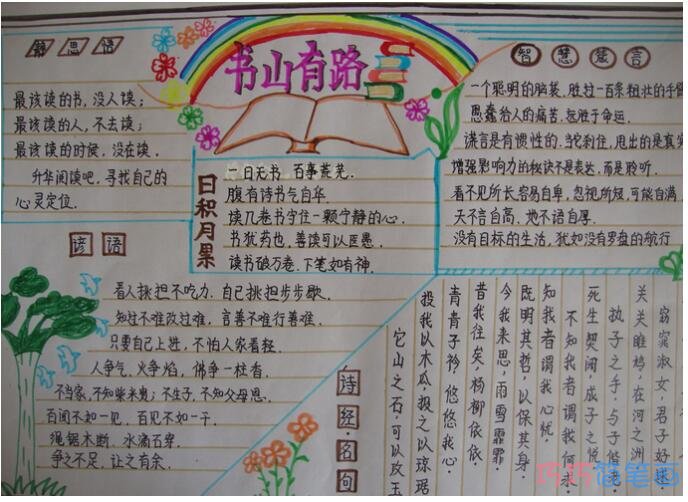 静思语
最该读的书，没人读；
最该读的人，不去读；
最该读的时候，没在读。
升华阅读吧，寻找自己的
心灵定位。
书山有路
日积月累
一日无书，百事荒芜。
腹有诗书气自华。
读几卷书守住一颗宁静的心。
书犹药也，善读可以医愚。
读书破万卷，下笔如有神。
智慧箴言
一个聪明的脑袋，胜过一百条粗壮的手臂
愚蠢给人的痛苦，远胜于命运。
谎言是有惯性的，当
刹住，甩出的是真实
增强影响力的秘诀不是表达，而是聆听。
看不见所长容易自卑，忽视所短，可能自满
天不言自高，地不语自厚。
没有目标的生活，犹如没有罗盘的航行
谚语
看人挑担不吃力，自己挑担步步歇。
知过不难改过难，言善不难行善难。
只要自己上进，不怕人家看轻。
人争气，火争焰，佛争一柱香。
不当家，不知柴米贵；不生子，不知父母恩。
百闻不如一见，百见不如一干。
绳锯木断，水滴石穿。
争之不足，让之有余。
诗经·名句
窈窕淑女，君子好逑
关关雎鸠，在河之洲
执子之手，与子偕老
死生契阔，成子之悦
不知我者谓我何求
知我者谓我心忧，
既明其哲，以保其身。
今我来思，雨雪霏霏
昔我往矣，杨柳依依
青青子衿，悠悠我心。
投我以木瓜，投之以琼琚
它山之石，可以攻玉
巧巧简笔画